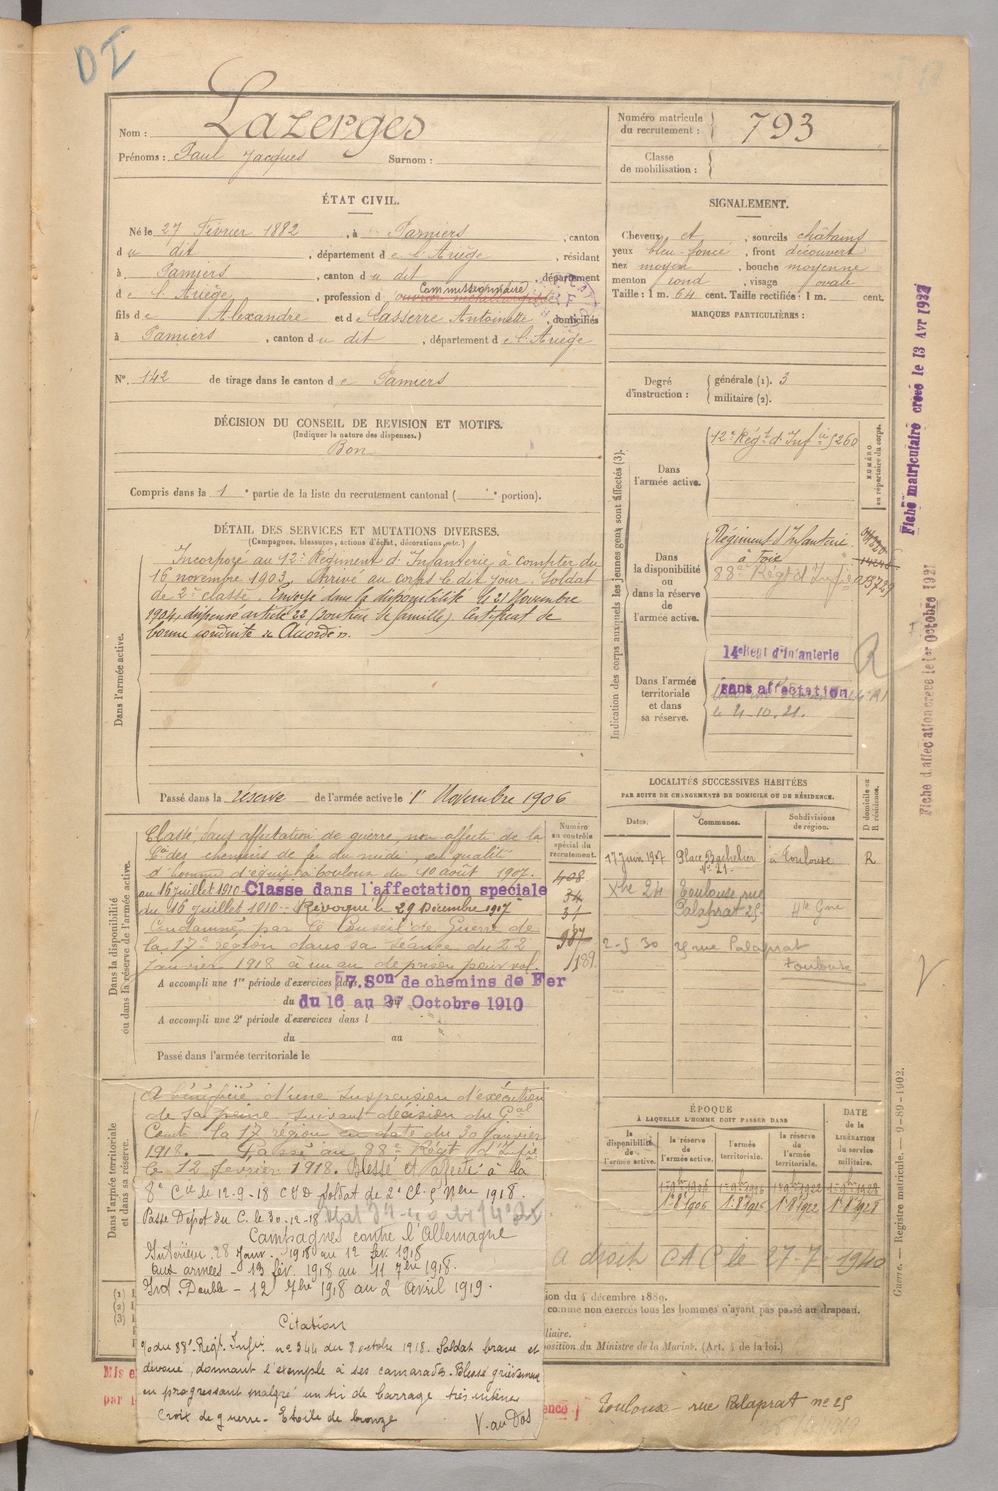 DI
Nom : Lazerges
Prénoms : Paul Jacques Surnom :
Numéro matricule du recrutement : 793
Classe de mobilisation :
ÉTAT CIVIL.
Né le 27 Février 1882, à Pamiers, canton
du dit, département de l'Ariège, résidant
à Pamiers, canton du dit, département
de l'Ariège, profession d Commissionnaire
fils de Alexandre et de Lasserre Antoinette, domiciliés
à Pamiers, canton du dit, département de l'Ariège
N°. 142 de tirage dans le canton de Pamiers
SIGNALEMENT.
Cheveux et, sourcils châtains
yeux bleu foncé, front découvert
nez moyen, bouche moyenne
menton rond, visage ovale
Taille : 1 m. 64 cent. Taille rectifiée : 1 m. cent.
MARQUES PARTICULIÈRES :
Degré d'instruction : générale (1). 3
militaire (2).
DÉCISION DU CONSEIL DE REVISION ET MOTIFS.
(Indiquer la nature des dispenses.)
Bon
Compris dans la 1e partie de la liste du recrutement cantonal ( e portion).
DÉTAIL DES SERVICES ET MUTATIONS DIVERSES.
(Campagnes, blessures, actions d'éclat, décorations, etc.)
Dans l'armée active.
Incorporé au 12e Régiment d'Infanterie à compter du
16 novembre 1903. Arrivé au corps le dit jour. Soldat
de 2e classe. Envoyé dans la disponibilité le 21 Novembre
1904, dispensé article 22 (soutien de famille). Certificat de
bonne conduite "Accordé".
Passé dans la réserve de l'armée active le 1er Novembre 1906
Indication des corps auxquels les jeunes gens sont affectés (3).
NUMÉRO au répertoire du corps.
Dans l'armée active.
12e Régt d'Infie 5260
Dans la disponibilité ou dans la réserve de l'armée active.
Régiment d'Infanterie
à Foix
88e Régt d'Infie
Dans l'armée territoriale et dans sa réserve.
14e Régt d'Infanterie
sans affectation
le 4-10.21.
R
Fiche matriculaire créée le 13 Avr 1922
Fiche d'affectation créée le 1er Octobre 1921
LOCALITÉS SUCCESSIVES HABITÉES
PAR SUITE DE CHANGEMENTS DE DOMICILE OU DE RÉSIDENCE.
Dates. Communes. Subdivisions de région. D domicile ou R résidence.
17 Juin 1907 Place Bachelier n° 21 à Toulouse R
Xbre 24 Toulouse rue Palaprat 25 Hte Gne
2-5 30 25 rue Palaprat Toulouse
Dans la disponibilité ou dans la réserve de l'armée active.
Numéro au contrôle spécial du recrutement.
Classé, sans affectation de guerre, non affecté de la
Cie des chemins de fer du midi, en qualité
d'homme d'équipe à Toulouse du 10 août 1907.
au 16 juillet 1910 Classé dans l'affectation spéciale
du 16 juillet 1910 - Révoqué le 29 Décembre 1917
Condamné par le Conseil de Guerre de
la 17e région dans sa séance du 22
janvier 1918 à un an de prison pour vol.
408
34
37
987
1189
A accompli une 1re période d'exercices 7. Son de chemins de Fer
du 16 au 27 Octobre 1910
A accompli une 2e période d'exercices dans l
du au
Passé dans l'armée territoriale le
Dans l'armée territoriale et dans sa réserve.
A bénéficié d'une suspension d'exécution
de sa peine suivant décision du Gal
Comdt la 17e région en date du 30 Janvier
1918. - Passé au 88e Régt d'Infie
le 12 février 1918. Blessé et affecté à la
8e Cie le 12-9-18
Passé Dépot du C. le 30-12-18
Campagnes contre l'Allemagne
Intérieur 28 Janv. 1918 au 12 fév. 1918
Aux armées - 13 fév. 1918 au 11 7bre 1918
Ind. Double - 12 7bre 1918 au 2 Avril 1919.
Citation
o/o du 88e Régt. Infie n° 344 du 8 octobre 1918. Soldat brave et
dévoué, donnant l'exemple à ses camarades. Blessé grièvement
en progressant malgré un tir de barrage très intense
Croix de guerre - Etoile de bronze
V. au Dos
ÉPOQUE
À LAQUELLE L'HOMME DOIT PASSER DANS
la disponibilité de l'armée active. la réserve de l'armée active. l'armée territoriale. la réserve de l'armée territoriale. DATE de la LIBÉRATION du service militaire.
1er 9bre 1906 1er 9bre 1916 1er 9bre 1922 1er 9bre 1928
1er 8bre 1905 1er 8bre 1915 1er 8bre 1922 1er 8bre 1928
a droit CAC le 27-7-1940
ion du 4 décembre 1889.
comme non exercés tous les hommes n'ayant pas passé au drapeau.
liaire.
position du Ministre de la Marine. (Art. 4 de la loi.)
Guerre. — Registre matricule. — 9-89-1902.
Mis e
par
ence
Toulouse - rue Palaprat n° 25